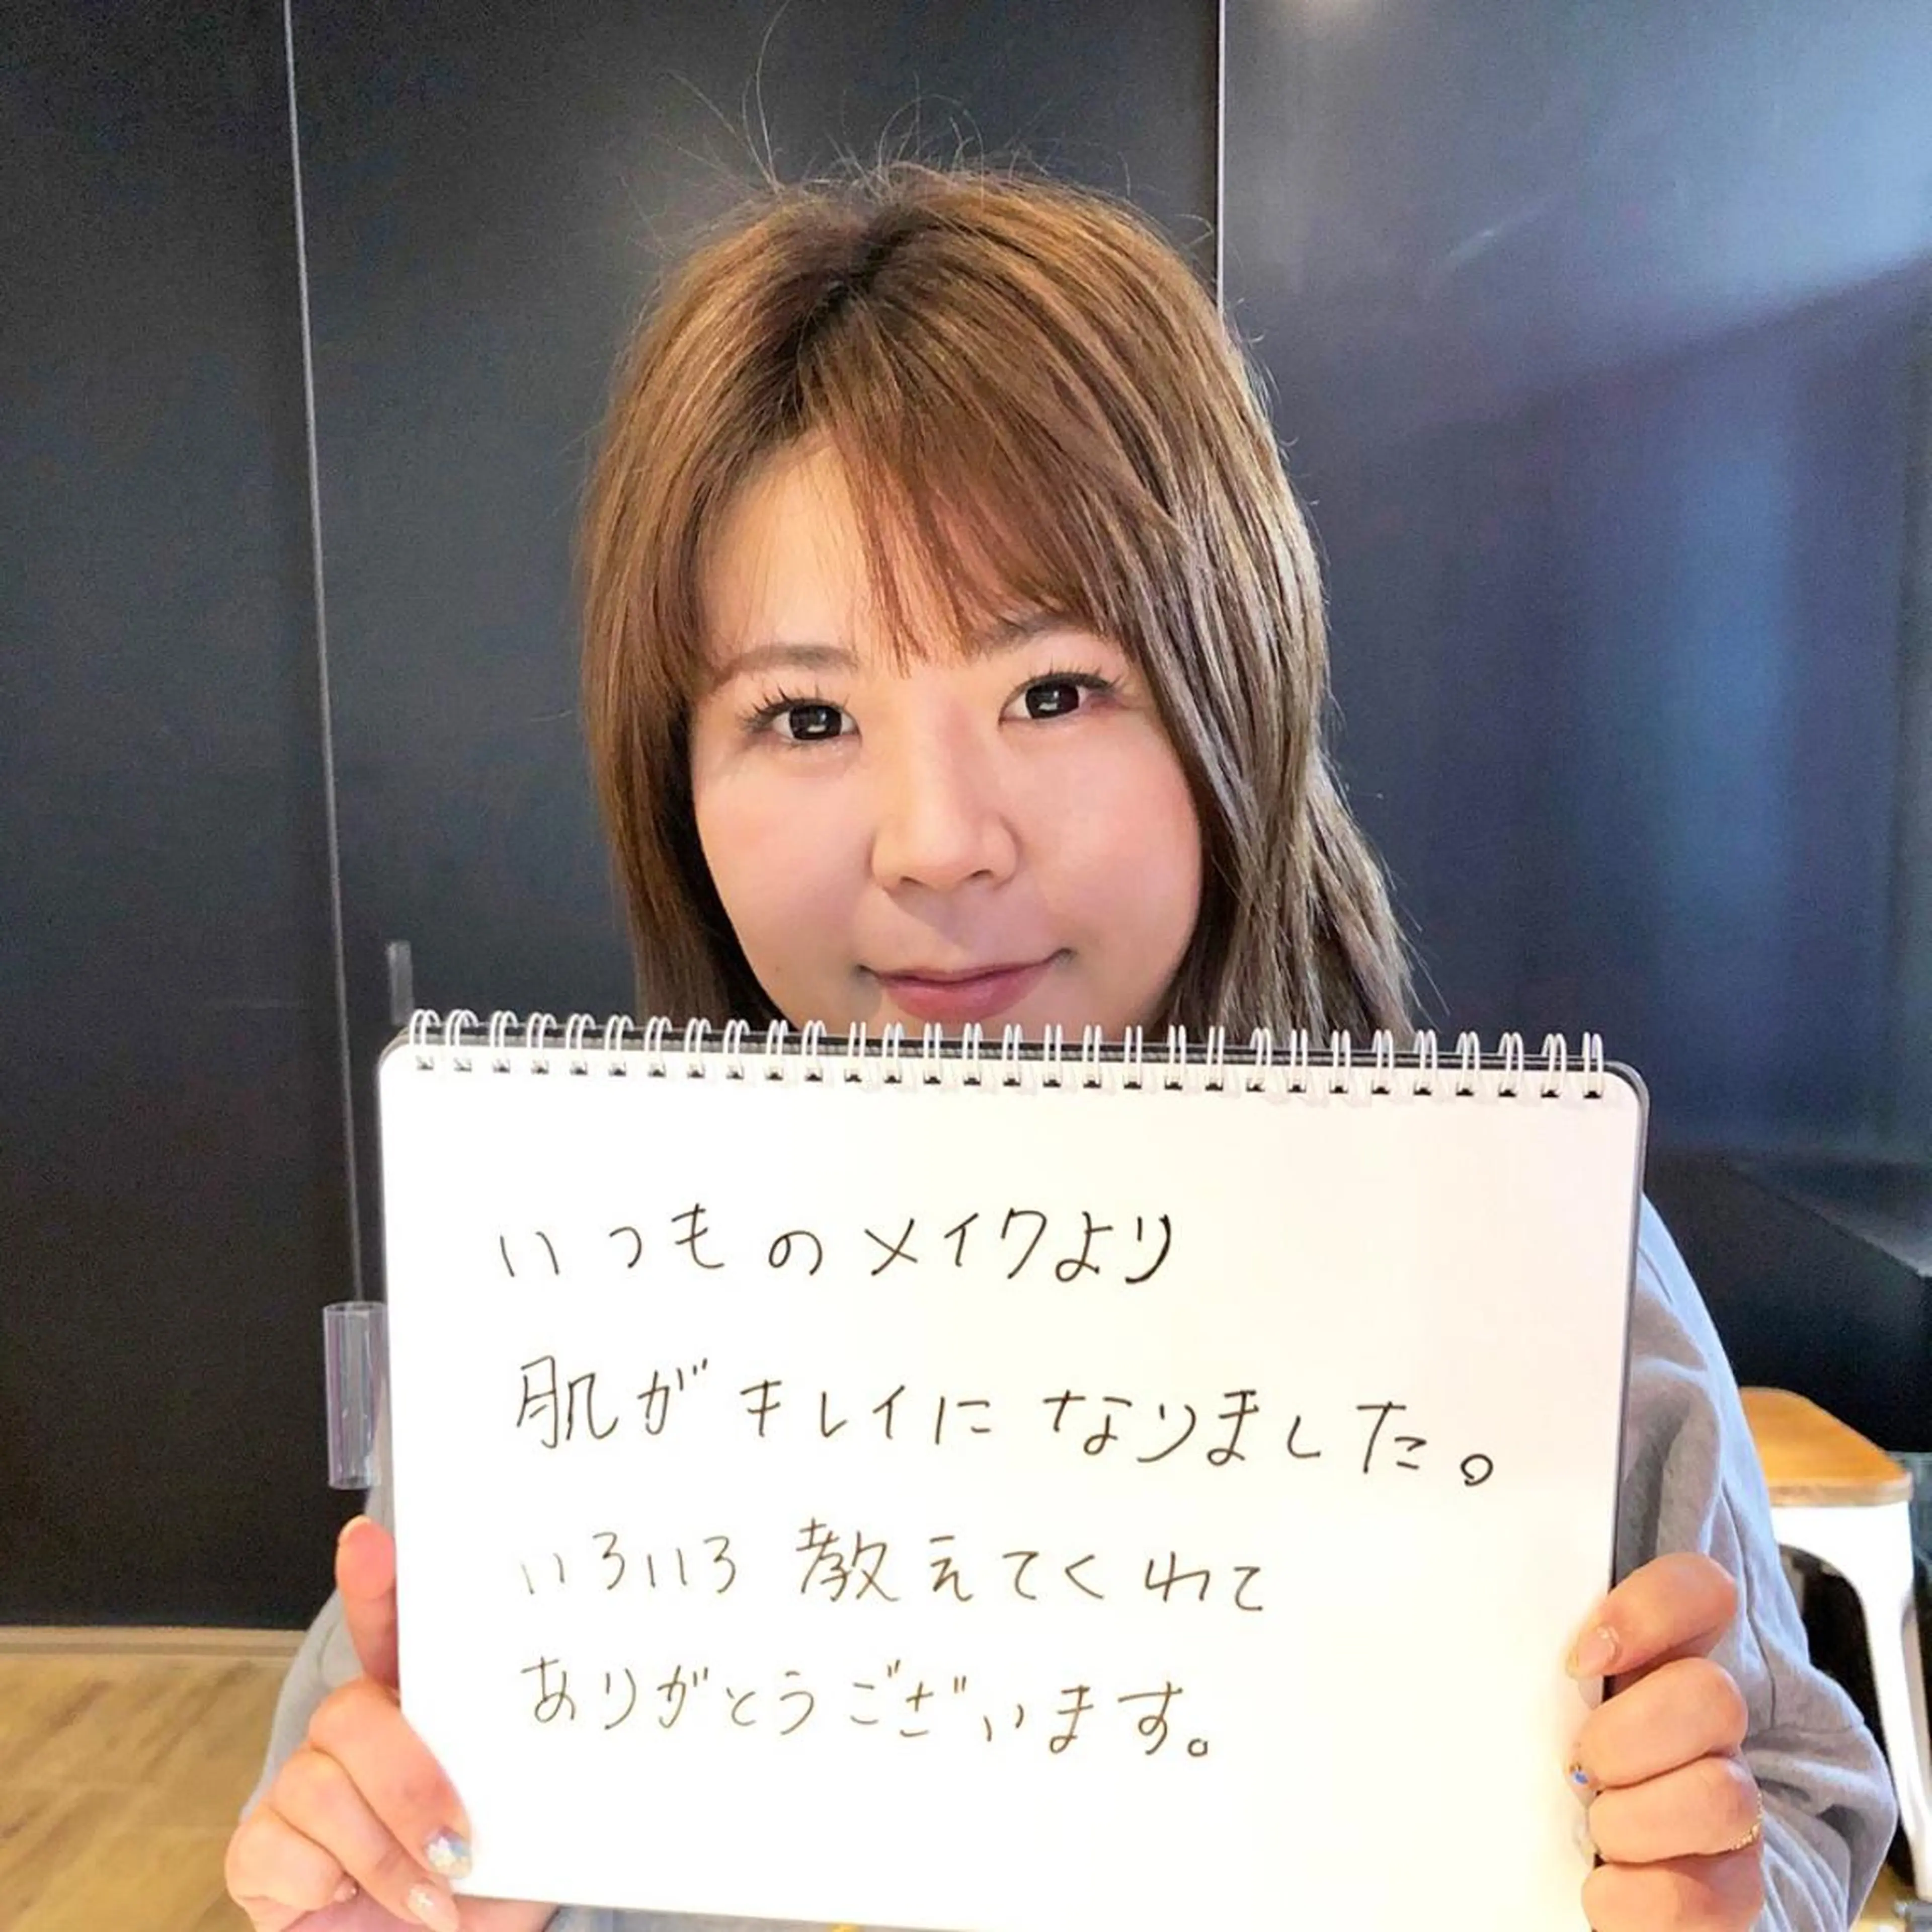 いつものメイクより
肌がキレイになりました。
いろいろ教えてくれて
ありがとうございます。